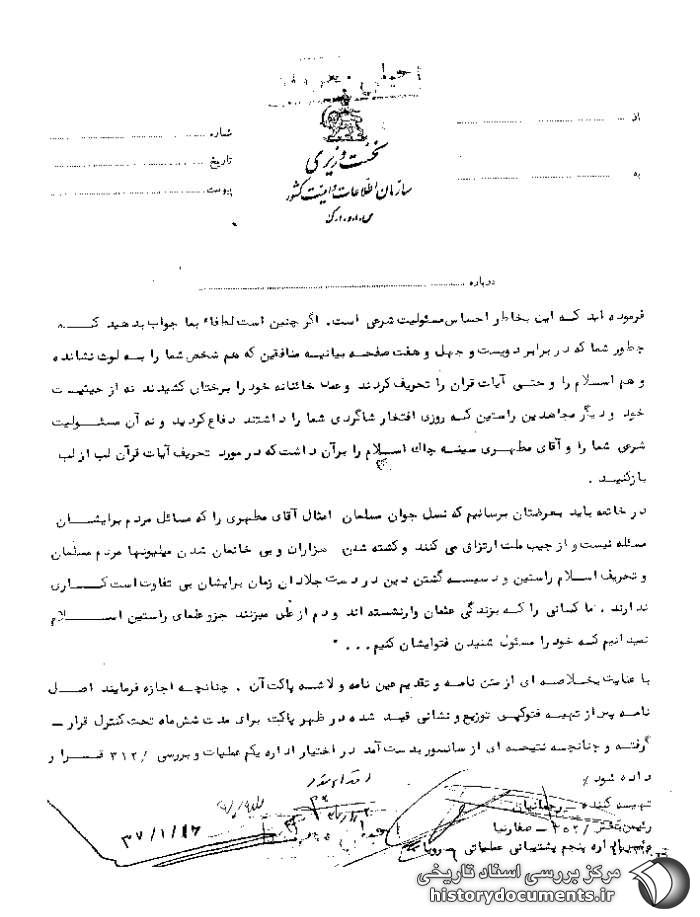 خیلی محرمانه
نخست وزیری
سازمان اطلاعات و امنیت کشور
س.ا.و.ا.ک
از
به
شماره
تاریخ
پیوست
درباره
فرموده اید که این بخاطر احساس مسئولیت شرعی است. اگر چنین است لطفاً بما جواب بدهید که
چطور شما که در برابر دویست و چهل و هفت صفحه بیانیه منافقین که هم شخص شما را به لوث نشانده
و هم اسلام را و حتی آیات قرآن را تحریف کردند و عمل خائنانه خود را برختان کشیدند نه از حیثیت
خود و دیگر مجاهدین راستین که روزی افتخار شاگردی شما را داشتند دفاع کردید و نه آن مسئولیت
شرعی شما را و آقای مطهری سینه چاک اسلام را برآن داشت که در مورد تحریف آیات قرآن لب از لب
بازکنید.
در خاتمه باید بعرضتان برسانیم که نسل جوان مسلمان امثال آقای مطهری را که مسائل مردم برایشان
مسئله نیست و از جیب ملت ارتزاق می کنند و کشته شدن هزاران و بی خانمان شدن میلیونها مردم مسلمان
و تحریف اسلام راستین و دسیسه گشتن دین در دست جلادان زمان برایشان بی تفاوت است کاری
ندارند. ما کسانی را که بزندگی عثمان وارنشسته اند و دم از علی میزنند جزو علمای راستین اسلام
نمیدانیم که خود را مسئول شنیدن فتوایشان کنیم... "
با عنایت بخلاصه ای از متن نامه و تقدیم عین نامه و لاشه پاکت آن. چنانچه اجازه فرمایند اصل
نامه پس از تهیه فتوکپی توزیع و نشانی قید شده در ظهر پاکت برای مدت شش ماه تحت کنترل قرار -
گرفته و چنانچه نتیجه ای از سانسور بدست آمد در اختیار اداره یکم عملیات و بررسی /۳۱۲ قرار
داده شود
تهیه کننده - رحمانیان
رئیس دفتر /۳۵۲ - صفارنیا
رئیس اداره پنجم پشتیبانی عملیاتی -
۳۷/۱/۱۶
مرکز بررسی اسناد تاریخی
historydocuments.ir